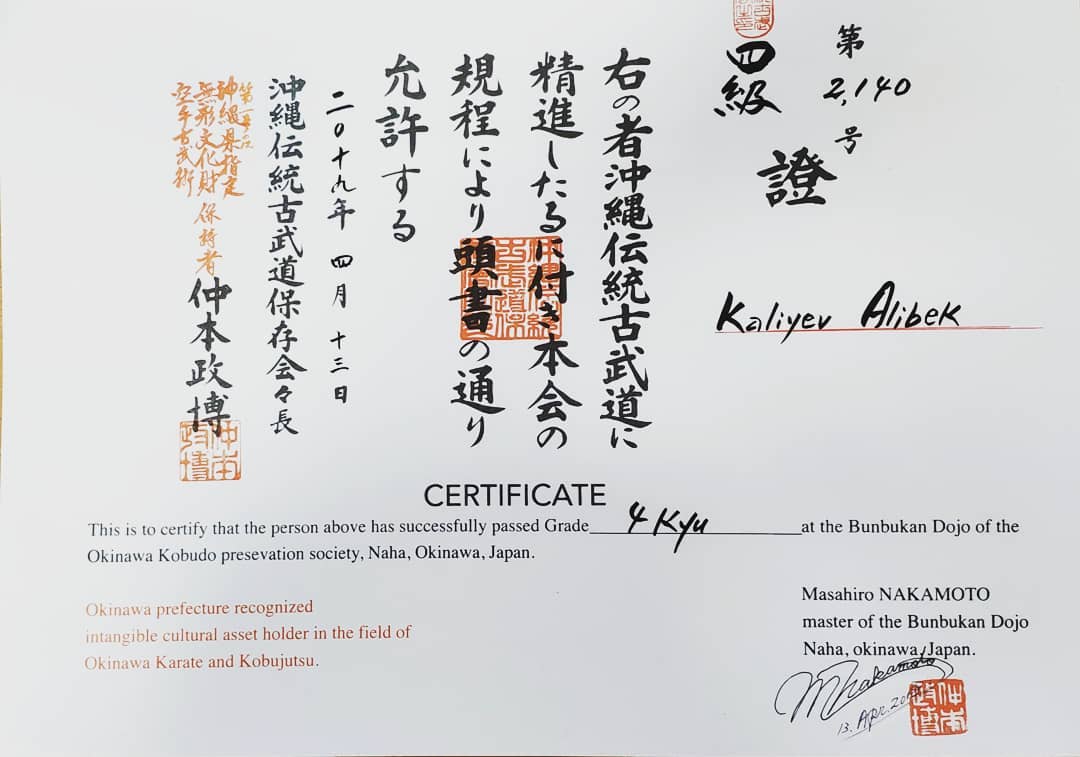 第2,140号
四級
證
Kaliyev Alibek
右の者沖縄伝統古武道に
精進したるに付き本会の
規程により頭書の通り
允許する
二〇十九年 四月 十三日
沖縄伝統古武道保存会々長
沖縄県指定
無形文化財
空手古武術
保持者 仲本政博
仲本政博
CERTIFICATE
This is to certify that the person above has successfully passed Grade 4 Kyu at the Bunbukan Dojo of the
Okinawa Kobudo presevation society, Naha, Okinawa, Japan.
Okinawa prefecture recognized
intangible cultural asset holder in the field of
Okinawa Karate and Kobujutsu.
Masahiro NAKAMOTO
master of the Bunbukan Dojo
Naha, okinawa, Japan.
M Nakamoto
13. Apr.
仲本政博